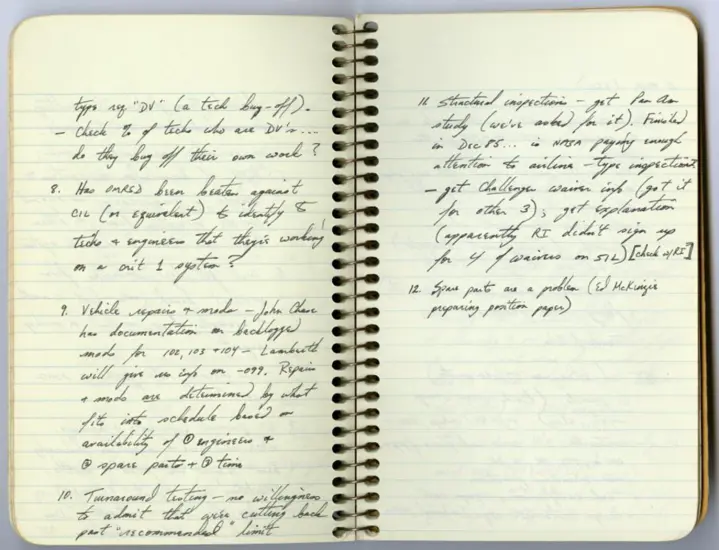 type req "DV" (a tech buy-off).
- Check % of techs who are DV's...
do they buy off their own work?
8. Has OMRSD been beaten against
CIL (or equivalent) to identify to
techs & engineers that they're working
on a crit 1 system?
9. Vehicle repairs & mods - John Chase
has documentation on backlogged
mods for 102, 103 + 104 - Lambreth
will give us info on -099. Repairs
& mods are determined by what
fits into schedule based on
availability of ① engineers &
② spare parts + ③ time
10. Turnaround testing - no willingness
to admit that we're cutting back
past "recommended" limit
11. Structural inspections - get Pan Am
study (we've asked for it). Finished
in Dec 85... is NASA paying enough
attention to airline-type inspections
- get Challenger waiver info (got it
for other 3); get explanation
(apparently RI didn't sign up
for 4 of waivers on 51L) [check w/RI]
12. Spare parts are a problem (Ed McKinzie
preparing position paper)